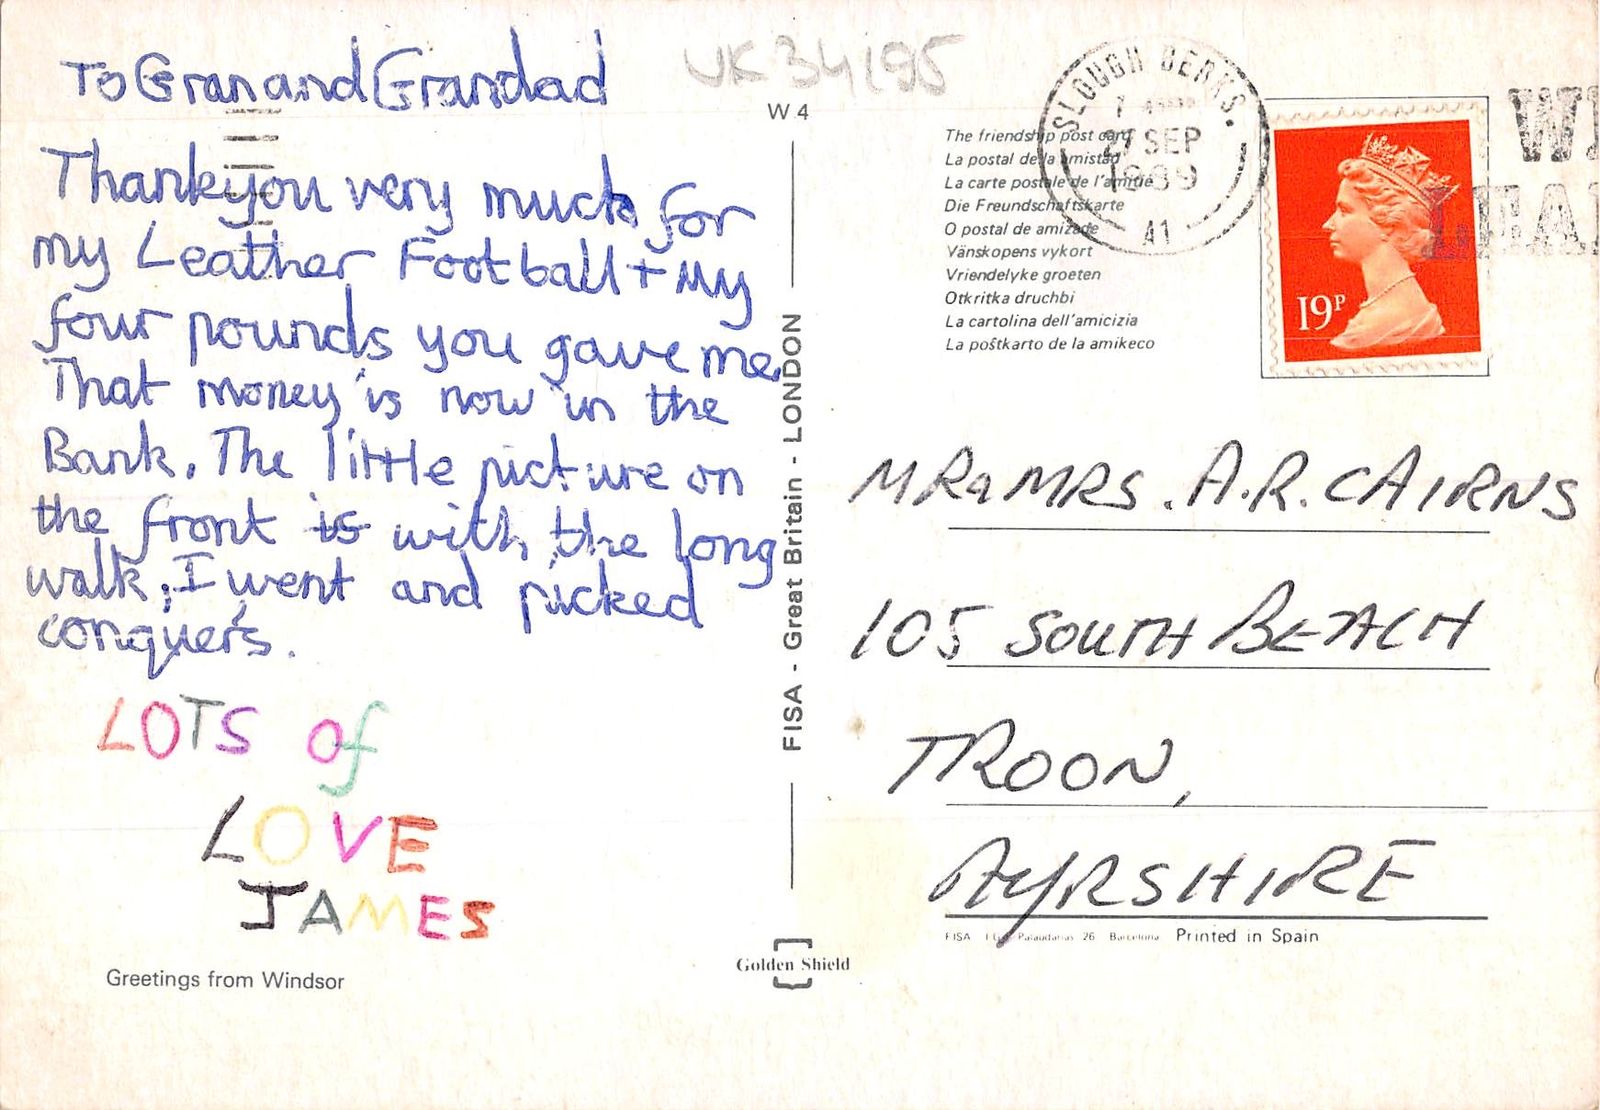 To Gran and Grandad
Thankyou very much for
my Leather Football + My
four pounds you gave me.
That money is now in the
Bank. The little picture on
the front is with the long
walk, I went and picked
conquers.
LOTS of
LOVE
JAMES
Greetings from Windsor
UK 34195
W 4
FISA - Great Britain - LONDON
Golden Shield
The friendship post card
La postal de la amistad
La carte postale de l'amitié
Die Freundschaftskarte
O postal de amizade
Vänskopens vykort
Vriendelyke groeten
Otkritka druchbi
La cartolina dell'amicizia
La poŝtkarto de la amikeco
SLOUGH BERKS.
27 SEP
1989
41
19P
MR & MRS. A.R. CAIRNS
105 SOUTH BEACH
TROON,
AYRSHIRE
FISA Palaudarias 26 Barcelona Printed in Spain